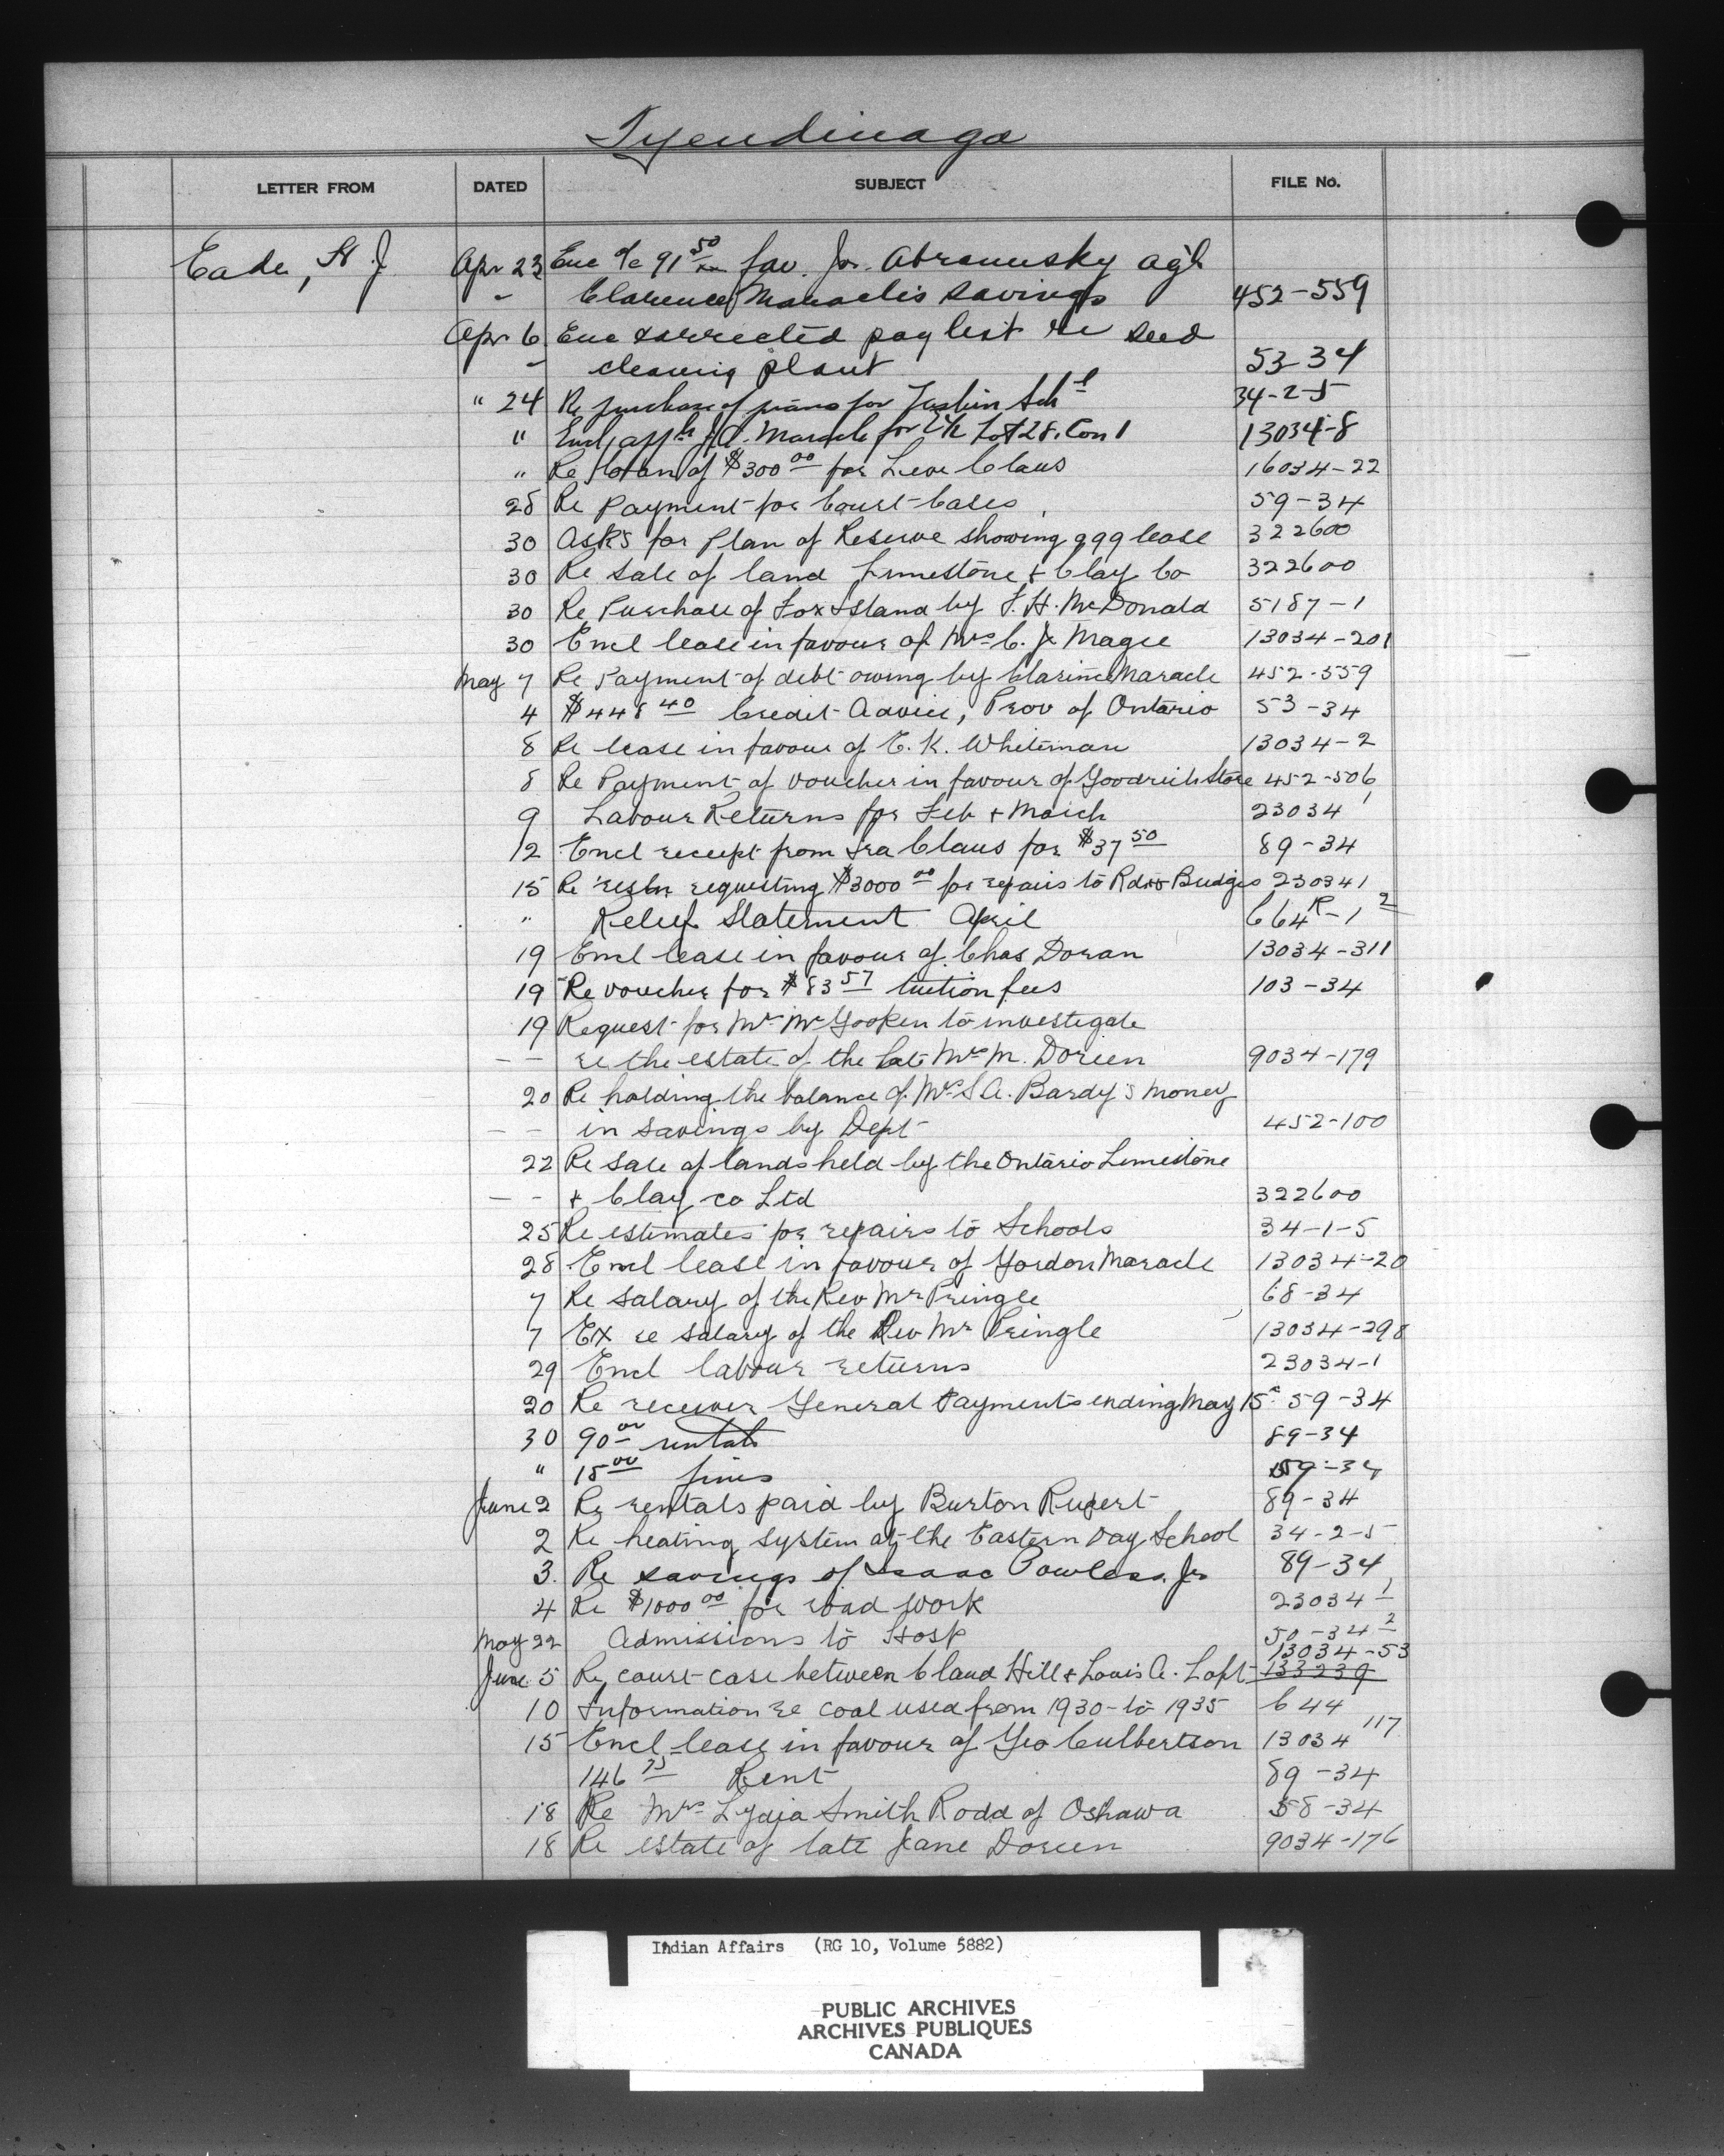 Tyendinaga
LETTER FROM DATED SUBJECT FILE No.
Eade, H J. Apr 23 Enc a/c 91 50 fav. Jos. Abramusky agt
" Clarence Maracle's savings 452-559
Apr 6 Enc corrected pay list re seed
" cleaning plant 53-34
" 24 Re purchase of piano for Sch l 34-2-5
" Encl, J.A. Maracle for Lot 28. Con 1 13034-8
" Re loan of $300 00 for Claus 16034-22
28 Re Payment for Court Cases 59-34
30 Asks for Plan of Reserve showing 999 lease 322600
30 Re sale of land Limestone & Clay Co 322600
30 Re Purchase of Fox Island by F. H. McDonald 5187-1
30 Encl lease in favour of Mrs C. J. Magee 13034-201
May 7 Re Payment of debt owing by Maracle 452-559
4 $448 40 Credit Advice, Prov of Ontario 53-34
8 Re lease in favour of E. K. Whiteman 13034-2
8 Re Payment of voucher in favour of Goodrich Store 452-506
9 Labour Returns for Feb & March 23034 1
12 Encl receipt from Ira Claus for $37 50 89-34
15 Re resln requesting $3000 00 for repairs to Rds & Bridges 230341
" Relief Statement April 664 R-1 2
19 Encl lease in favour of Chas Doran 13034-311
19 Re voucher for $83 57 tuition fees 103-34
19 Request for Mr McGooken to investigate
-- re the estate of the late Mrs M. Doreen 9034-179
20 Re holding the balance of Mrs S A. Bardy's money
-- in savings by Dept 452-100
22 Re sale of lands held by the Ontario Limestone
-- & Clay co Ltd 322600
25 Re estimates for repairs to Schools 34-1-5
28 Encl lease in favour of Gordon Maracle 13034-20
7 Re salary of the Rev Mr Pringle 68-34
7 Ex re salary of the Rev Mr Pringle 13034-298
29 Encl labour returns 23034-1
20 Re receiver General Payments ending May 15 59-34
30 90 00 rentals 89-34
" 15 00 fines 59-34
June 2 Re rentals paid by Burton Rupert 89-34
2 Re heating system at the Eastern Day School 34-2-5
3. Re savings of Isaac Powless. Jr 89-34
4 Re $1000 00 for road work 23034 1
May 22 Admissions to Hosp 50-34 2
13034-53
June 5 Re court case between Claud Hill & Louis A. Loft 133239
10 Information re coal used from 1930 to 1935 644
15 Encl lease in favour of Geo Culbertson 13034 117
146 75 Rent 89-34
18 Re Mrs Lydia Smith Rodd of Oshawa 58-34
18 Re estate of late Jane Doreen 9034-176
Indian Affairs (RG 10, Volume 5882)
PUBLIC ARCHIVES
ARCHIVES PUBLIQUES
CANADA